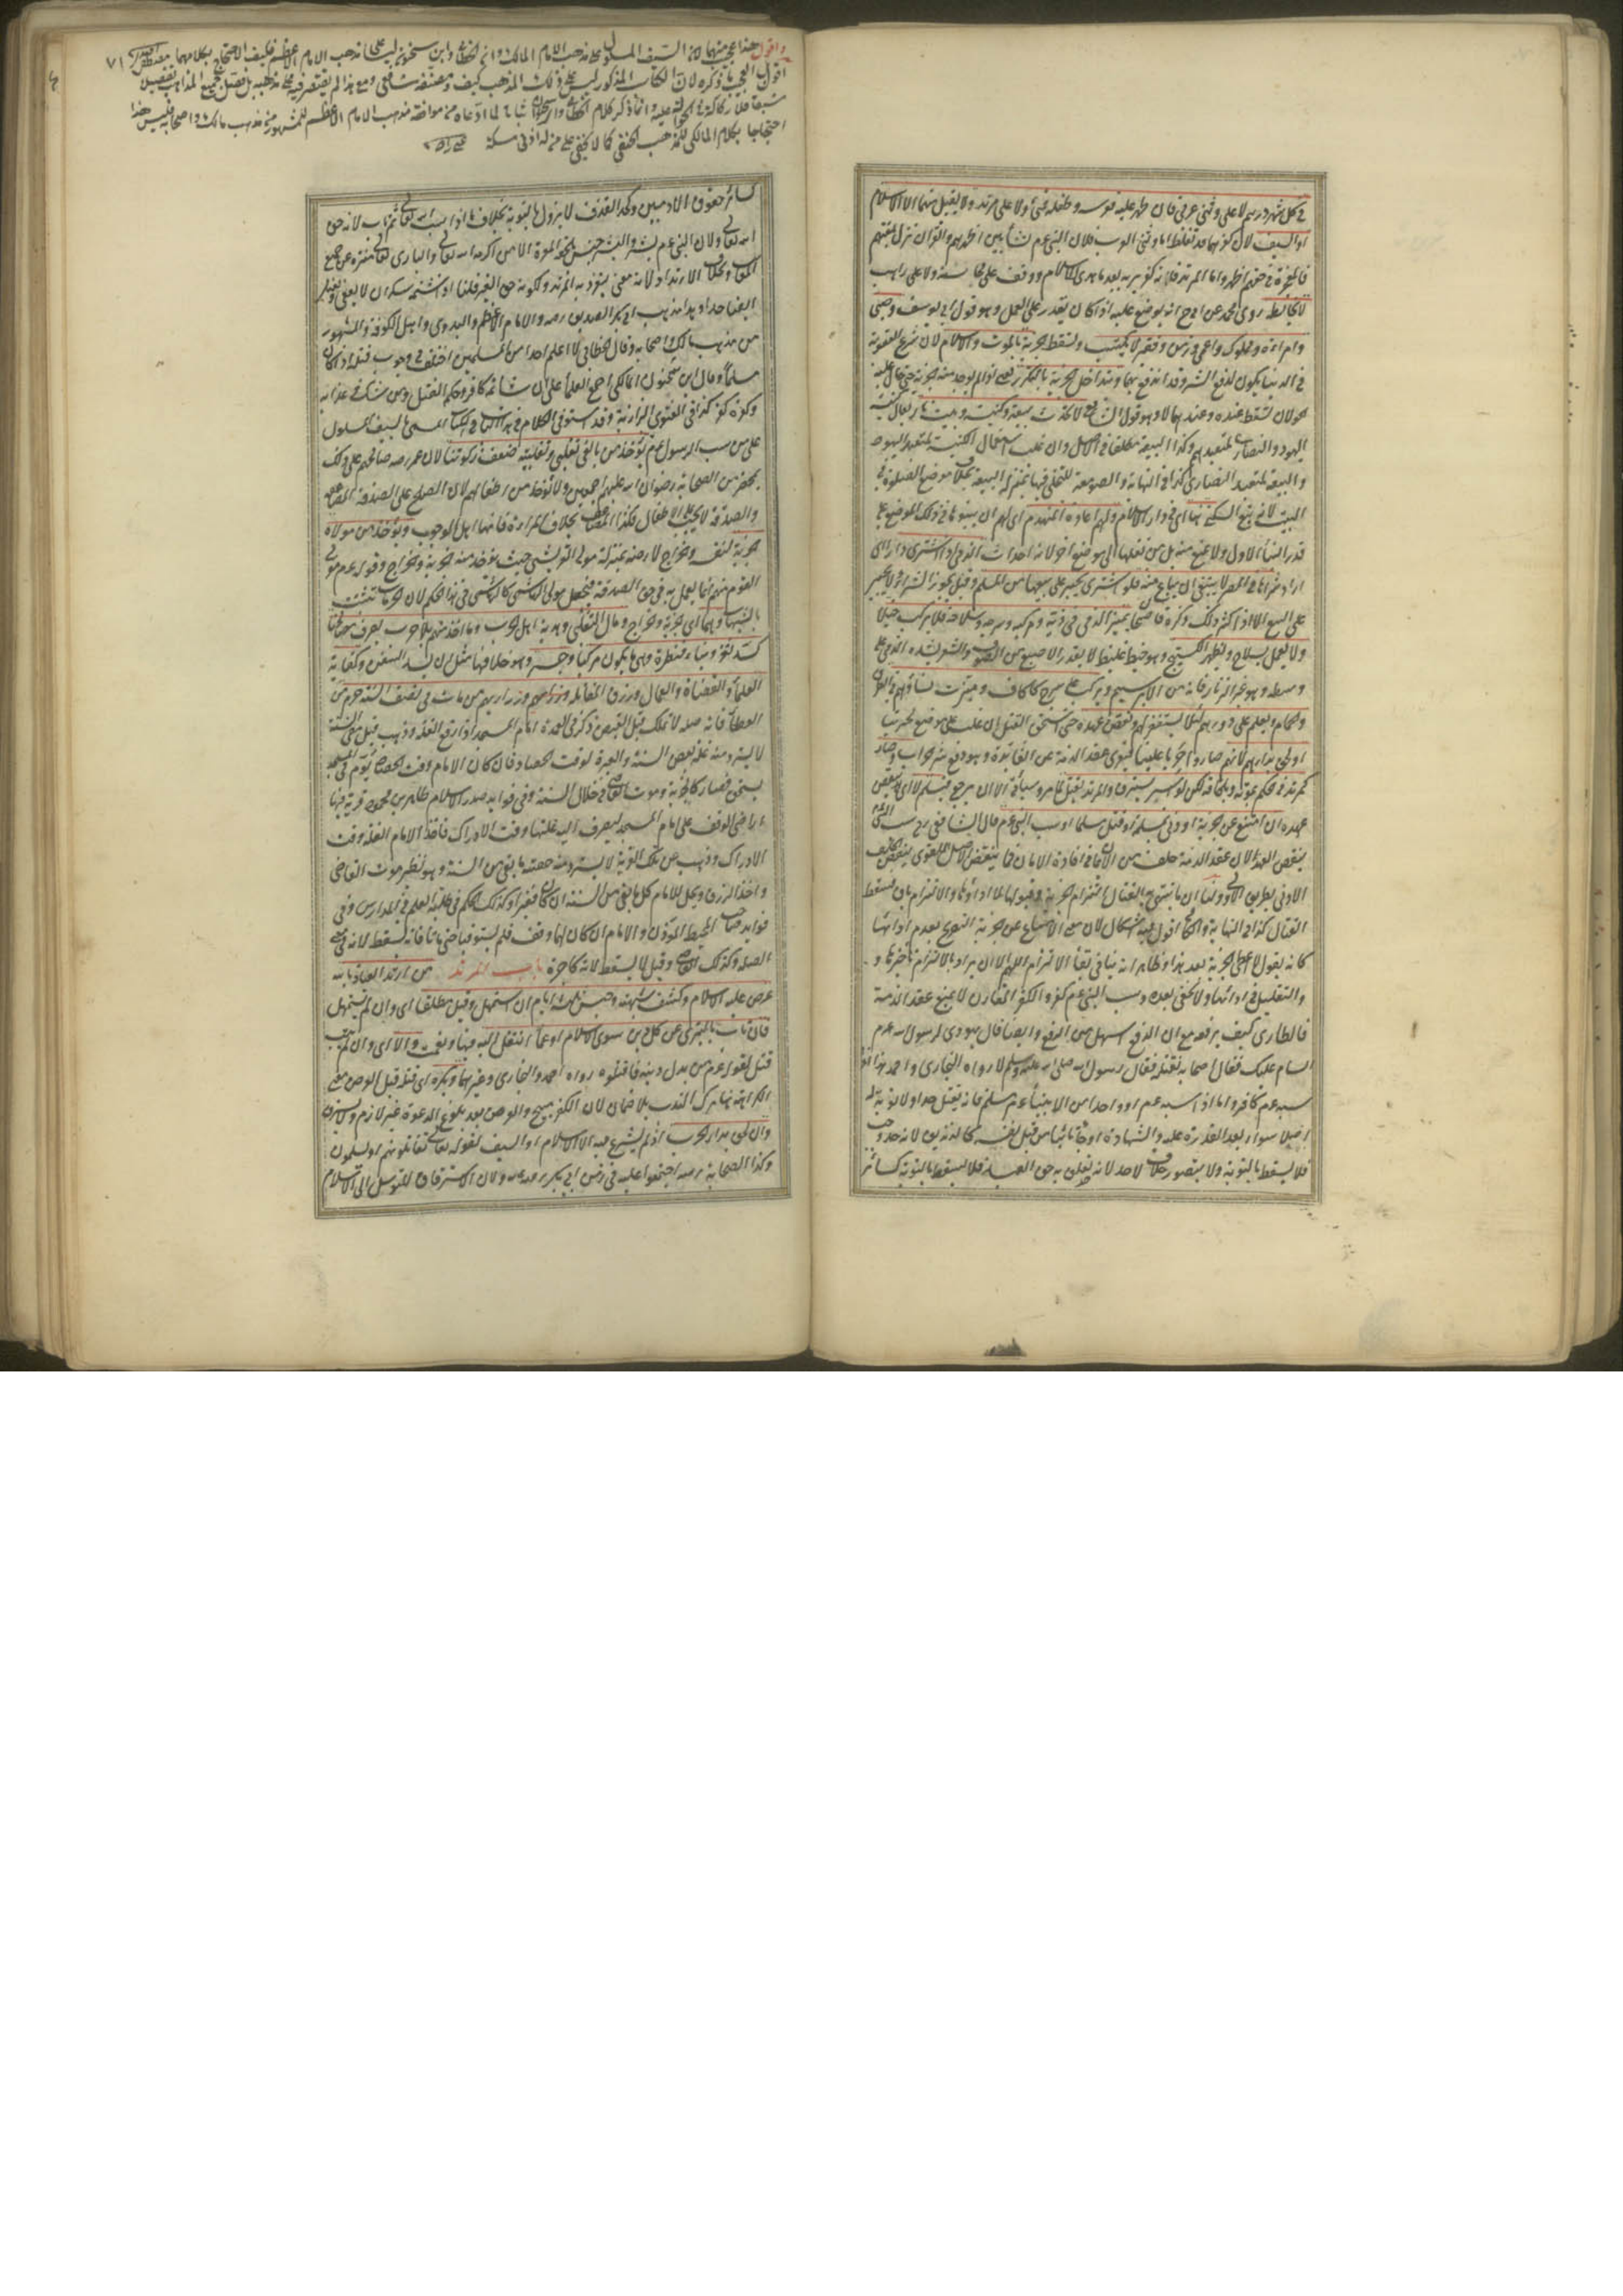 في كل شهر درهم لا على وثني عربي فان ظهر عليه فعرسه وطفله فئ ولا على مرتد ولا يقبل منهما الا الاسلام
او السيف لان كفرهما قد تغلظ اما وثني العرب فلان النبي عم نشأ بين اظهرهم والقرآن نزل بلغتهم
فالمعجزة في حقهم اظهر واما المرتد فلانه كفر بربه بعد ما هدى للاسلام ووقف على محاسنه ولا على راهب
لا يخالط روى محمد عن ابي ح انه يوضع عليه اذا كان يقدر على العمل وهو قول ابي يوسف وصبي
وامرأة ومملوك واعمى وزمن وفقير لا يكتسب وتسقط الجزية بالموت والاسلام لان شرع العقوبة
في الدنيا يكون لدفع الشر وقد اندفع بهما وتتداخل الجزية بالتكرر يعني لو لم يوجد منه جزية حتى حال عليه
حولان تسقط عنده وعندهما لا وهو قول الشافعي لا تحدث بيعة وكنيسة وبيت نار يقال كنيسة
اليهود والنصارى لمتعبدهم وكذا البيعة مطلقا في الاصل وان غلب استعمال الكنيسة لمتعبد اليهود
والبيعة لمتعبد النصارى كذا في النهاية والصومعة للتخلي فيها بمنزلة البيعة بخلاف موضع الصلوة في
البيت لانه يتبع السكنى هنا اي في دار الاسلام ولهم اعادة المنهدم اي لهم ان يبنوها في ذلك الموضع على
قدر البناء الاول ولا يمنع منه بل من نقلها الى موضع اخر لانه احداث الذمي اذا اشترى دارا اي
اراد شراءها في المصر لا ينبغي ان يباع منه فلو اشترى يجبر على بيعها من المسلم وقيل يجوز الشراء ولا يجبر
على البيع الا اذا كثر ذلك ذكره قاضيخان يميز الذمي في زيه ومركبه وسرجه وسلاحه فلا يركب خيلا
ولا يعمل بسلاح ويظهر الكستيج وهو خيط غليظ لا بقدر الاصبع من الصوف والشعر يشده الذمي على
وسطه وهو غير الزنار فانه من الابريسم ويركب على سرج كالاكاف وميزت نساؤهم في الطرق
والحمام ويعلم على دورهم لئلا يستغفر لهم ونقض عهده حتى يستحق القتل ان غلب على موضع لحربنا
او لحق بدارهم لانهم صاروا حربا علينا فيعرى عقد الذمة عن الفائدة وهو دفع شر الحراب وصار
كمرتد في حكم بموته وبلحاقه لكن لو اسر يسترق والمرتد يقتل لما مر وسيأتي الا ان يرجع فيسلم لا اي لا ينقض
عهده ان امتنع عن الجزية او زنى بمسلمة او قتل مسلما او سب النبي عم قال الشافعي رح سب النبي عم
ينقض العهد لان عقد الذمة خلف عن الايمان في افادة الامان فما ينقض الاصل الاقوى ينقض الخلف
الادنى بطريق الاولى ولنا ان ما ينتهي به القتال التزام الجزية وقبولها لا اداؤها والالتزام باق فيسقط
القتال كذا في النهاية والكافي اقول فيه اشكال لان معنى الامتناع عن الجزية التصريح بعدم ادائها
كانه يقول لا اعطي الجزية بعد هذا وظاهر انه ينافي بقاء الالتزام اللهم الا ان يراد بالالتزام تأخيرها و
والتعليل في ادائها ولا يخفى بعده وسب النبي عم كفر والكفر المقارن لا يمنع عقد الذمة
فالطاري كيف يرفعه مع ان الدفع اسهل من الرفع وايضا قال يهودي لرسول الله عم
السام عليك فقال اصحابه نقتله فقال رسول الله صلى الله عليه وسلم لا رواه البخاري واحمد هذا اذا
سبه عم كافر واما اذا سبه عم او واحدا من الانبياء عم مسلم فانه يقتل حدا ولا توبة له
اصلا سواء بعد القدرة عليه والشهادة او جاء تائبا من قبل نفسه كالزنديق لانه حد وجب
فلا يسقط بالتوبة ولا يتصور خلاف لاحد لانه تعلق به حق العبد فلا يسقط بالتوبة كسائر
واقول هذا عجيب منهما لان السيف المسلول على مذهب الامام المالك وان الخطابي وابن سحنون ليسا على مذهب الامام الاعظم فكيف الاحتجاج بكلامهما ٧١
اقول العجيب ما ذكره لان الكتاب المذكور ليس على ذلك المذهب كيف ومصنفه شافعي ومع هذا لم يقتصر فيه على مذهبه بل فصل جميع المذاهب تفصيل
فلا ركاكة في الحوالة عليه وانما ذكر كلام الخطابي وابن سحنون اثباتا لما ادعاه من موافقة مذهب الامام الاعظم للمشهور من مذهب مالك واصحابه فليس هذا
احتجاجا بكلام المالكي للمذهب الحنفي كما لا يخفى على من له ادنى مسكة
كسائر حقوق الادميين وكحد القذف لا يزول بالتوبة بخلاف ما اذا سب الله تعالى ثم تاب لانه حق
الله تعالى ولان النبي عم بشر والبشر جنس يلحقه المعرة الا من اكرمه الله تعالى والباري تعالى منزه عن جميع
المعايب وبخلاف الارتداد لانه معنى يتفرد به المرتد ولكونه حق الغير قلنا اذا شتمه سكران لا يعفى ويقتل
ايضا حدا وهذا مذهب ابي بكر الصديق رضه والامام الاعظم والبدري واهل الكوفة والمشهور
من مذهب مالك واصحابه وقال الخطابي لا اعلم احدا من المسلمين اختلف في وجوب قتله اذا كان
مسلما وقال ابن سحنون المالكي اجمع العلماء على ان شاتمه كافر وحكمه القتل ومن شك في عذابه
وكفره كفر كذا في الفتاوى البزازية وقد استوفى الكلام في هذا الباب في الكتاب المسمى بالسيف المسلول
على من سب الرسول عم يؤخذ من بالغي تغلبي وتغلبية ضعف زكوتنا لان عمر رضه صالحهم على ذلك
بمحضر من الصحابة رضوان الله عليهم اجمعين ولا تؤخذ من اطفالهم لان الصلح على الصدقة المضاعفة
والصدقة لا تجب على الاطفال فكذا المضاعف بخلاف المرأة فانها اهل الوجوب ويؤخذ من مولاه
الجزية لنفسه والخراج لارضه بمنزلة مولى القرشي حيث يؤخذ منه الجزية والخراج وقوله عم مولى
القوم منهم انما يعمل به في حق الصدقة فجعل مولى الهاشمي كالهاشمي في هذا الحكم لان الحرمات تثبت
بالشبهات وهما اي الجزية والخراج ومال التغلبي وهدية اهل الحرب وما اخذ منهم بلا حرب يصرف مصالحنا
كسد ثغر وبناء قنطرة وهي ما يكون مركبا وجسر وهو خلافها مثل ان يشد السفن وكفاية
العلماء والقضاة والعمال ورزق المقاتلة وذراريهم من مات في نصف السنة حرم من
العطاء فانه صلة لا تملك قبل القبض ذكر في العمدة امام المسجد اذا رفع الغلة وذهب قبل مضي السنة
لا يسترد منه غلة بعض السنة والعبرة لوقت الحصاد فان كان الامام وقت الحصاد يؤم في المسجد
يستحق فصار كالجزية وموت القاضي في خلال السنة وفي فوائد صدر الاسلام طاهر بن محمود قرية فيها
اراضي الوقف على امام المسجد يصرف اليه غلتها وقت الادراك فاخذ الامام الغلة وقت
الادراك وذهب عن تلك القرية لا يسترد منه حصة ما بقي من السنة وهو نظير موت القاضي
واخذ الرزق ويحل للامام كل ما بقي من السنة ان كان فقيرا وكذلك الحكم في طلبة العلم في المدارس وفي
فوائد صاحب المحيط المؤذن والامام ان كان لهما وقف فلم يستوفيا حتى ماتا فانه يسقط لانه في معنى
الصلة وكذلك القاضي وقيل لا يسقط لانه كالاجرة باب المرتد من ارتد العياذ بالله
عرض عليه الاسلام وكشف شبهته وحبس ثلثة ايام ان استمهل وقيل مطلقا اي وان لم يستمهل
فان تاب بالتبري عن كل دين سوى الاسلام او عما انتقل اليه فبها ونعمت والا اي وان لم يتب
قتل لقوله عم من بدل دينه فاقتلوه رواه احمد والبخاري وغيرهما ويكره اي قتله قبل العرض معنى
الكراهة هنا ترك الندب بلا ضمان لان الكفر مبيح والعرض بعد بلوغ الدعوة غير لازم ولا يسترق
وان لحق بدار الحرب اذ لم يشرع فيه الا الاسلام او السيف لقوله تعالى تقاتلونهم او يسلمون
وكذا الصحابة رضه اجتمعوا عليه في زمن ابي بكر رضه ولان الاسترقاق للتوسل الى الاسلام